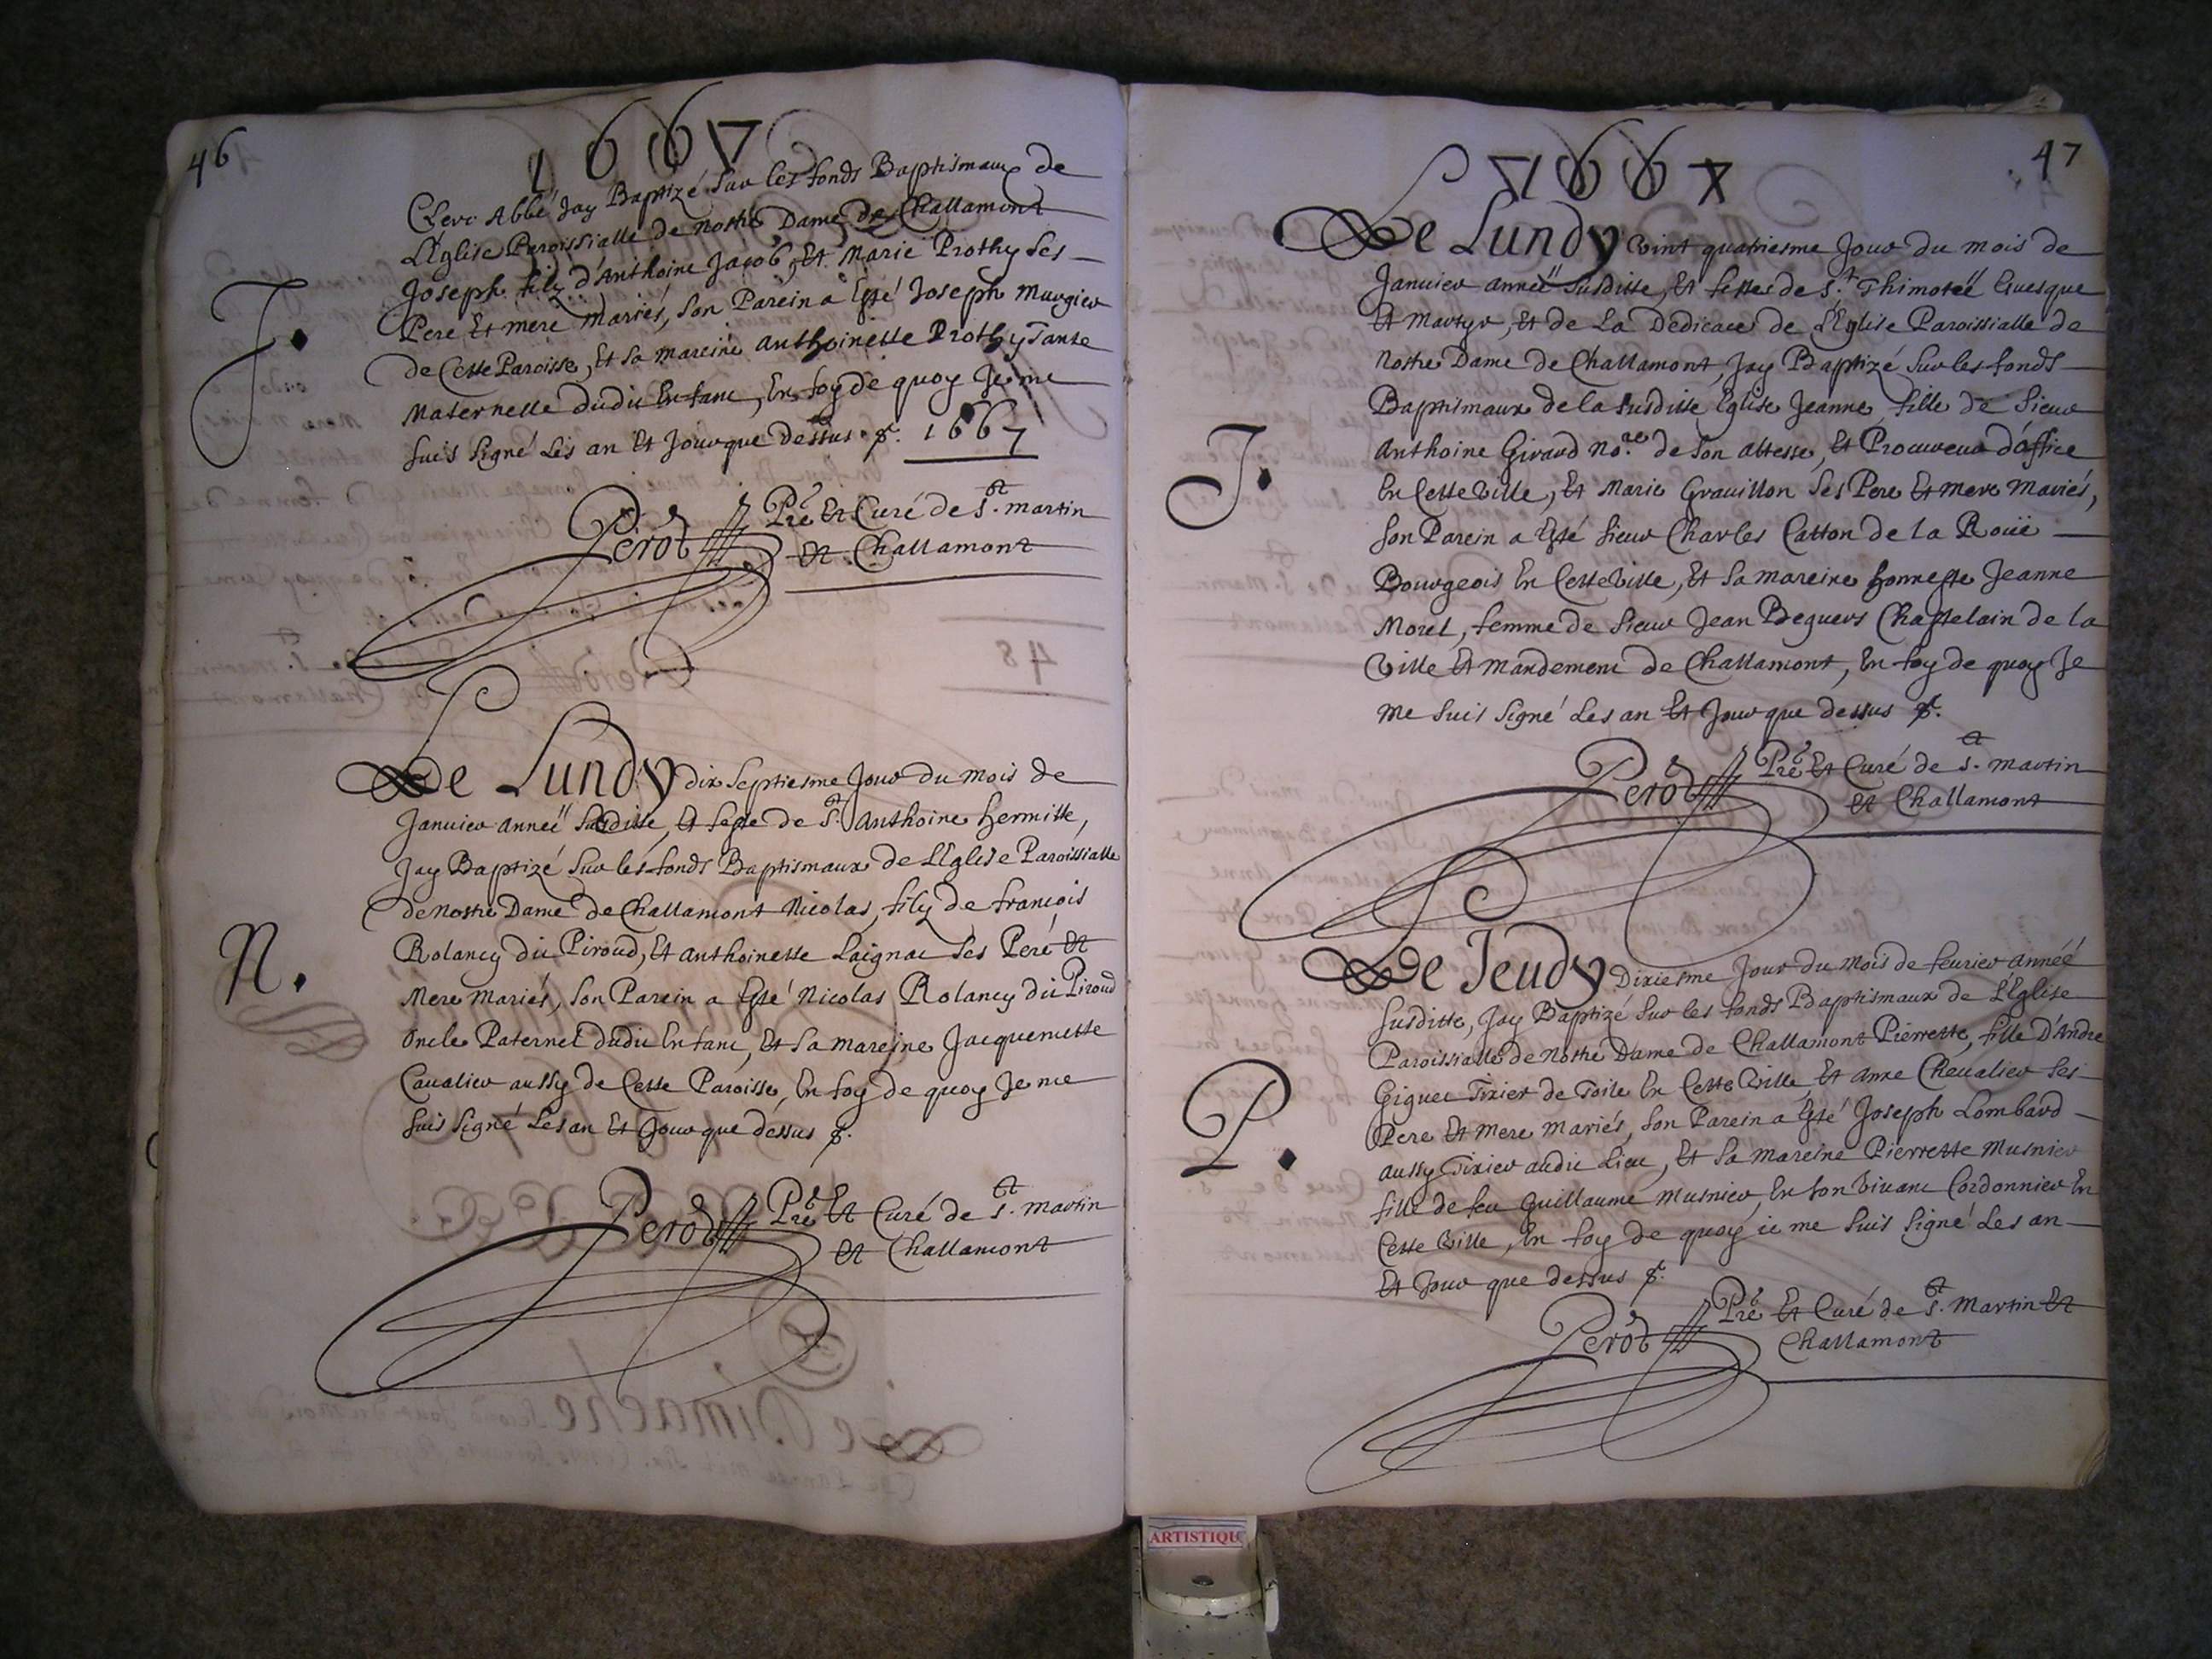 46
1667
Clerc Abbé Jay Baptizé Sur les fonds Baptismaux de
L'Eglise Paroissialle de Nostre Dame de Challamont
Joseph filz d'Anthoine Jacob, Et Marie Prothy Ses
Pere Et mere Mariés, Son Parein a Esté Joseph Murgier
de Cette Paroisse, Et Sa Mareine Anthoinette Prothy Tante
Maternelle dudit Enfant, En foy de quoy Je me
Suis Signé Les an Et Jour que dessus 1667
J.
Perod Pre Et Curé de St. Martin
Et Challamont
Le Lundy dix Septiesme Jour du Mois de
Januier anneé Susditte, Et feste de St. Anthoine hermitte,
Jay Baptizé Sur les fonds Baptismaux de L'Eglise Paroissialle
de Nostre Dame de Challamont Nicolas, filz de françois
Rolancy dit Piroud, Et Anthoinette Laignac Ses Pere Et
Mere Mariés, Son Parein a Esté Nicolas Rolancy dit Piroud
Oncle Paternel dudit Enfant, Et Sa Mareine Jacquemette
Caualier aussy de Cette Paroisse, En foy de quoy Je me
Suis Signé Les an Et Jour que dessus
N.
Perod Pre Et Curé de St. Martin
Et Challamont
47
1667
Le Lundy Vint quatriesme Jour du mois de
Januier anneé Susditte, Et feste de St. Thimoteé Euesque
Et Martyr, Et de La Dedicace de L'Eglise Paroissialle de
Nostre Dame de Challamont, Jay Baptizé Sur les fonds
Baptismaux de la Susditte Eglise Jeanne fille de Sieur
Anthoine Girard No.re de Son Altesse, Et Procureur d'office
En Cette Ville, Et Marie Grauillon Ses Pere Et mere Mariés,
Son Parein a Esté Sieur Charles Catton de la Roüe
Bourgeois En Cette Ville, Et Sa Mareine honneste Jeanne
Morel, femme de Sieur Jean Beguers Chastelain de la
Ville Et Mandement de Challamont, En foy de quoy Je
me Suis Signé Les an Et Jour que dessus
J.
Perod Pre Et Curé de St. Martin
Et Challamont
Le Jeudy Dixiesme Jour du Mois de feurier anneé
Susditte, Jay Baptizé Sur les fonds Baptismaux de L'Eglise
Paroissialle de Nostre Dame de Challamont Pierrette, fille D'André
Giguet Tixier de Toile En Cette Ville, Et Anne Cheualier Ses
Pere Et Mere Mariés, Son Parein a Esté Joseph Lombard
aussy Tixier audit Lieu, Et Sa Mareine Pierrette Musnier
fille de feu Guillaume Musnier, En Son Viuant Cordonnier En
Cette Ville, En foy de quoy ie me Suis Signé Les an
Et Jour que dessus
P.
Perod Pre Et Curé de St. Martin Et
Challamont
ARTISTIQU